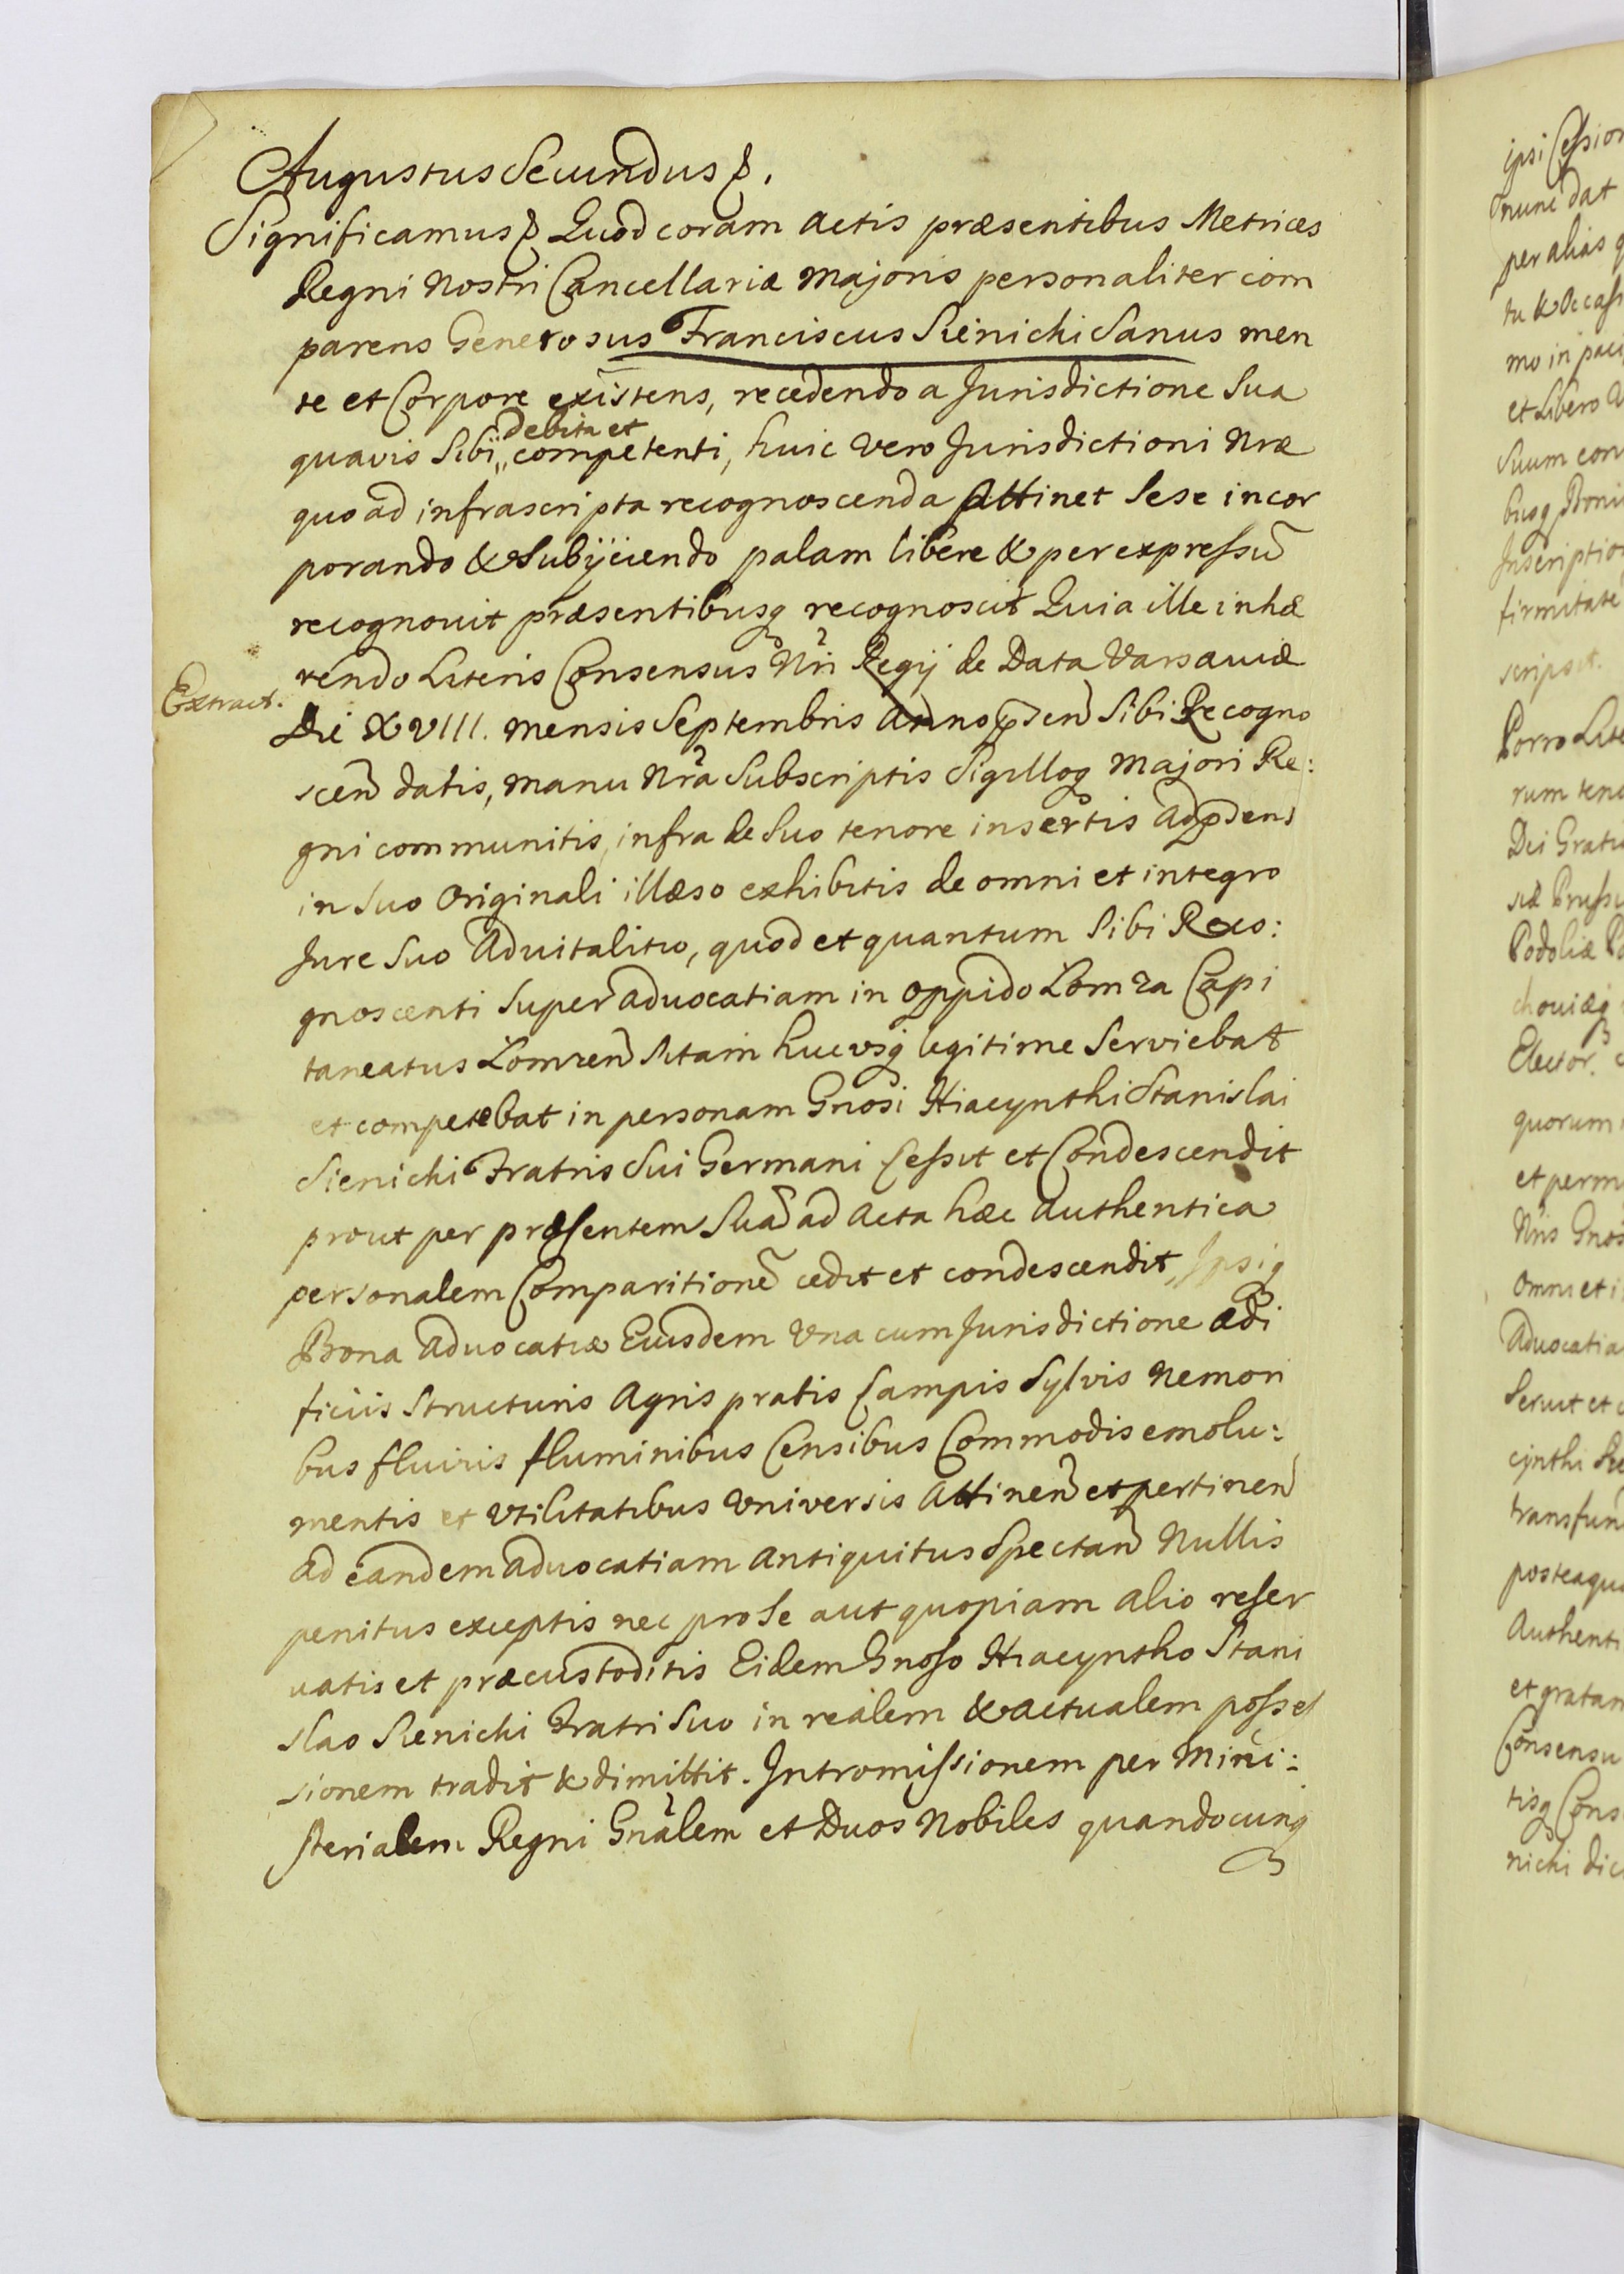 Augustus Secundus &.
Significamus & Quod coram actis præsentibus Metrices
Regni Nostri Cancellariæ Majoris personaliter com
parens Generosus Franciscus Sienichi Sanus men
te et Corpore existens, recedendo a Jurisdictione Sua
debita et
quavis Sibi,, competenti, huic vero Jurisdictioni Nræ
quo ad infrascripta recognoscenda Attinet Sese incor
porando & Subijciendo palam libere & per expressũ
recognouit præsentibusq recognoscit Quia ille inhæ
rendo Literis Consensus Nri Regij de Data Varsauiæ
Extract.
Die XVIII. mensis Septembris Anno p̃sen̄ Sibi Recogno
scen̄ datis, manu Nrã Subscriptis Sigilloq Majori Re:
gni communitis, infra de Suo tenore insertis ad p̃sens
in Suo Originali illæso exhibitis de omni et integro
Jure Suo Aduitalitio, quod et quantum Sibi Reco:
gnoscenti Super aduocatiam in oppido Lomza Capi
taneatus Lomzen̄ Sitam hucvsq legitime Serviebat
et competebat in personam Gnosi Hiacynthi Stanislai
Sienichi Fratris Sui Germani Cessit et Condescendit
prout per præsentem Suã ad Acta hæc Authentica
personalem Comparitionẽ cedit et condescendit, Ipsiq
Bona Aduocatiæ Eiusdem Vna cum Jurisdictione ædi
ficiis Structuris Agris pratis Campis Sylvis Nemori
bus fluviis fluminibus Censibus Commodis emolu:
mentis et Vtilitatibus Vniversis Attinen̄ et pertinen̄
ad eandem aduocatiam Antiquitus Spectan̄ Nullis
penitus exceptis nec pro Se aut quopiam alio reser
uatis et præcustoditis Eidem Gnoso Hiacyntho Stani
slao Sienichi Fratri Suo in realem & actualem posses
sionem tradit & dimittit. Intromissionem per Mini:
sterialem Regni Gnãlem et Duos Nobiles quandocunq
ipsi
nunc dat
per alias
mo in
et Libero
Suum
firmitate
scripsit.
Porro
rum
Dei
Podoliæ
Elector.
quorum
et
Nris
omni et
Aduocatia
Seruit et
cynthi
et gratam
Consensu
tisq
nichi